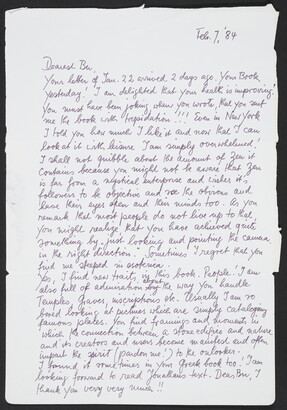 Feb. 7, '84
Dearest Bri,
Your letter of Jan. 22 arrived 2 days ago. Your Book
Yesterday! I am delighted that your health is improving!
You must have been joking when you wrote, that you sent
me the book with trepidation!!! Even in New York
I told you how much I like it and now that I can
look at it with leisure I am simply overwhelmed!
I shall not quibble about the amount of Zen it
contains because you might not be aware that Zen
is far from a mystical enterprise and wishes its
followers to be objective and see the obvious and
leave their eyes open and their minds too. As you
remark that most people do not live up to that,
you might realize that you have achieved quite
something by just looking and pointing the camera
in the right direction. Sometimes I regret that you
find me steeped in
Yes, I find new traits in this book. People. I am
also full of admiration about the way you handle
Temples, Graves, inscriptions etc. Usually I am so
bored looking at pictures which are simply cataloguing
famous places. You find framings and moments in
which the connection between a stone edifice and nature
and its creators and users become manifest and often
impart the spirit (pardon me!) to the onlooker.
I found it sometimes in your Greek book too! I am
looking forward to read Jonathans text. Dear Bri, I
thank you very very much!!